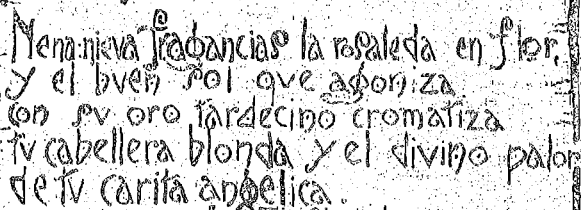 Nena: nieva fragancias la rosaleda en flor,
y el buen sol que agoniza
con su oro tardecino cromatiza
tu cabellera blonda y el divino palor
de tu carita angelica.